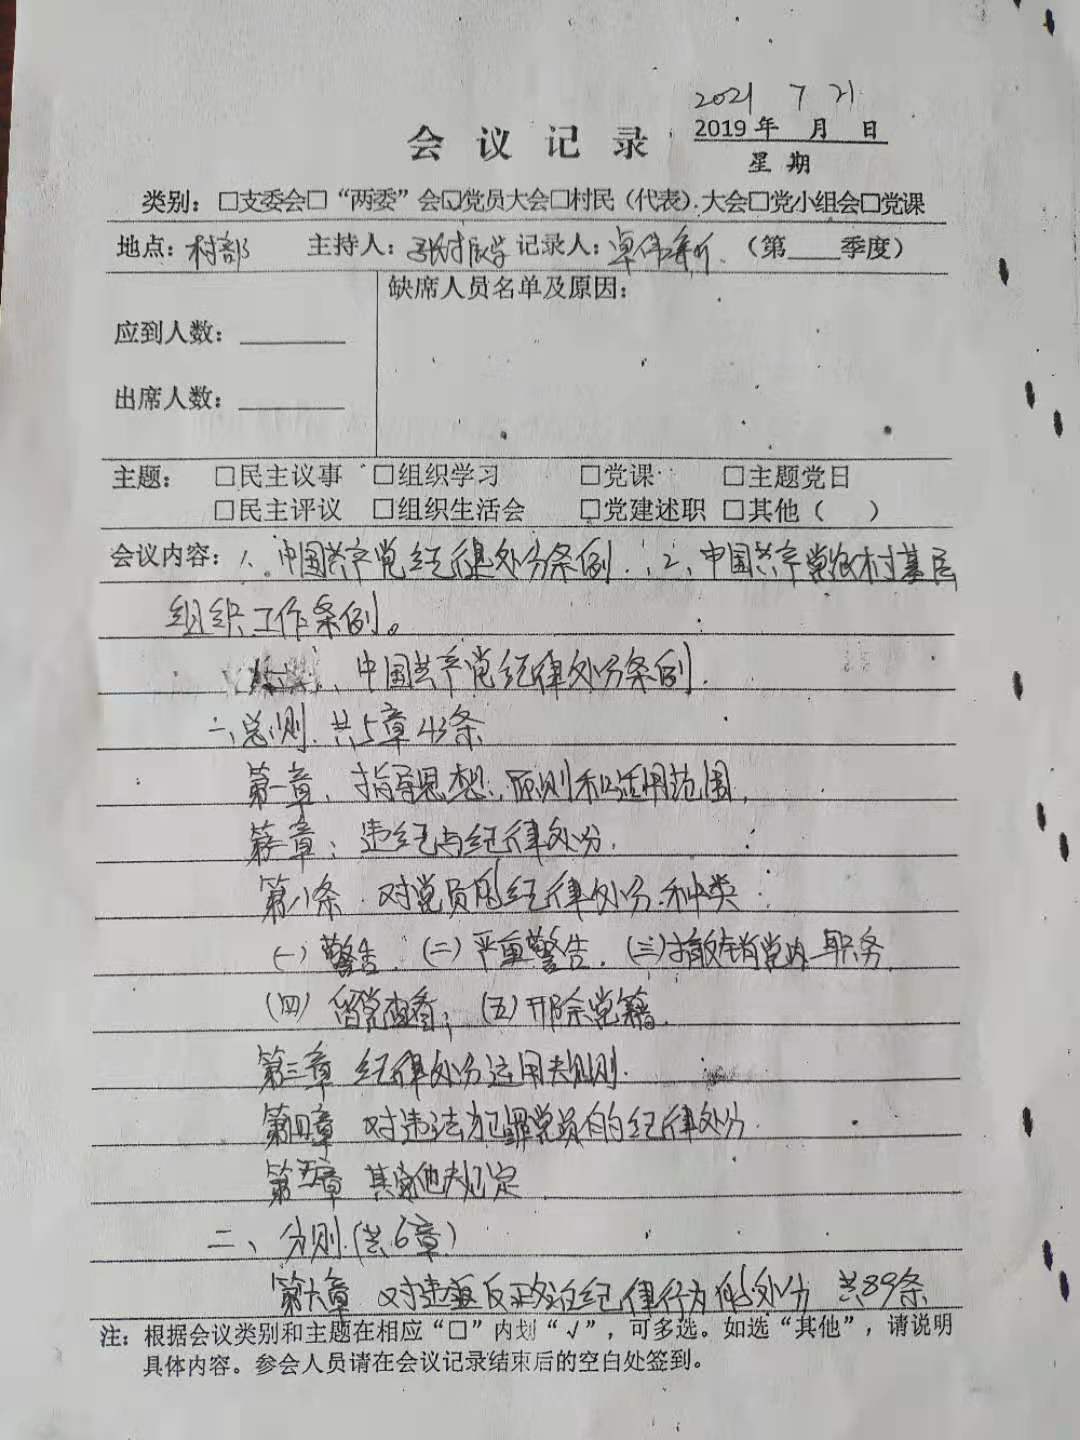 2021 7 21
会议记录 2019年 月 日
星期
类别：□支委会□“两委”会☑党员大会□村民（代表）大会□党小组会□党课
地点：村部 主持人： 记录人：卓伟 （第____季度）
缺席人员名单及原因：
应到人数：
出席人数：
主题： □民主议事 □组织学习 □党课 □主题党日
□民主评议 □组织生活会 □党建述职 □其他（ ）
会议内容：1、中国共产党纪律处分条例．2、中国共产党农村基层
组织工作条例。
1、中国共产党纪律处分条例．
一、总则．共5章43条
第一章、指导思想、原则和适用范围．
第二章：违纪与纪律处分．
第八条 对党员的纪律处分种类：
（一）警告．（二）严重警告．（三）撤销党内职务．
（四）留党查看；（五）开除党籍．
第三章 纪律处分运用规则．
第四章 对违法犯罪党员的纪律处分．
第五章 其他规定．
二、分则．（共6章）
第六章 对违反政治纪律行为的处分 共89条
注：根据会议类别和主题在相应“□”内划“√”，可多选。如选“其他”，请说明
具体内容。参会人员请在会议记录结束后的空白处签到。